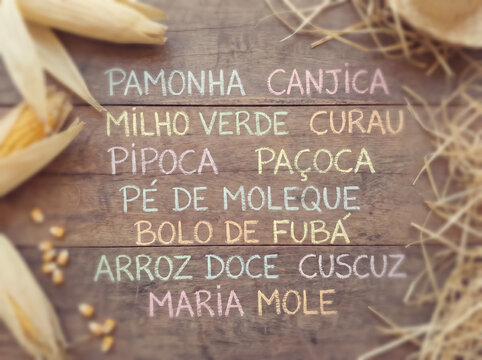 PAMONHA CANJICA
MILHO VERDE CURAU
PIPOCA PAÇOCA
PÉ DE MOLEQUE
BOLO DE FUBÁ
ARROZ DOCE CUSCUZ
MARIA MOLE